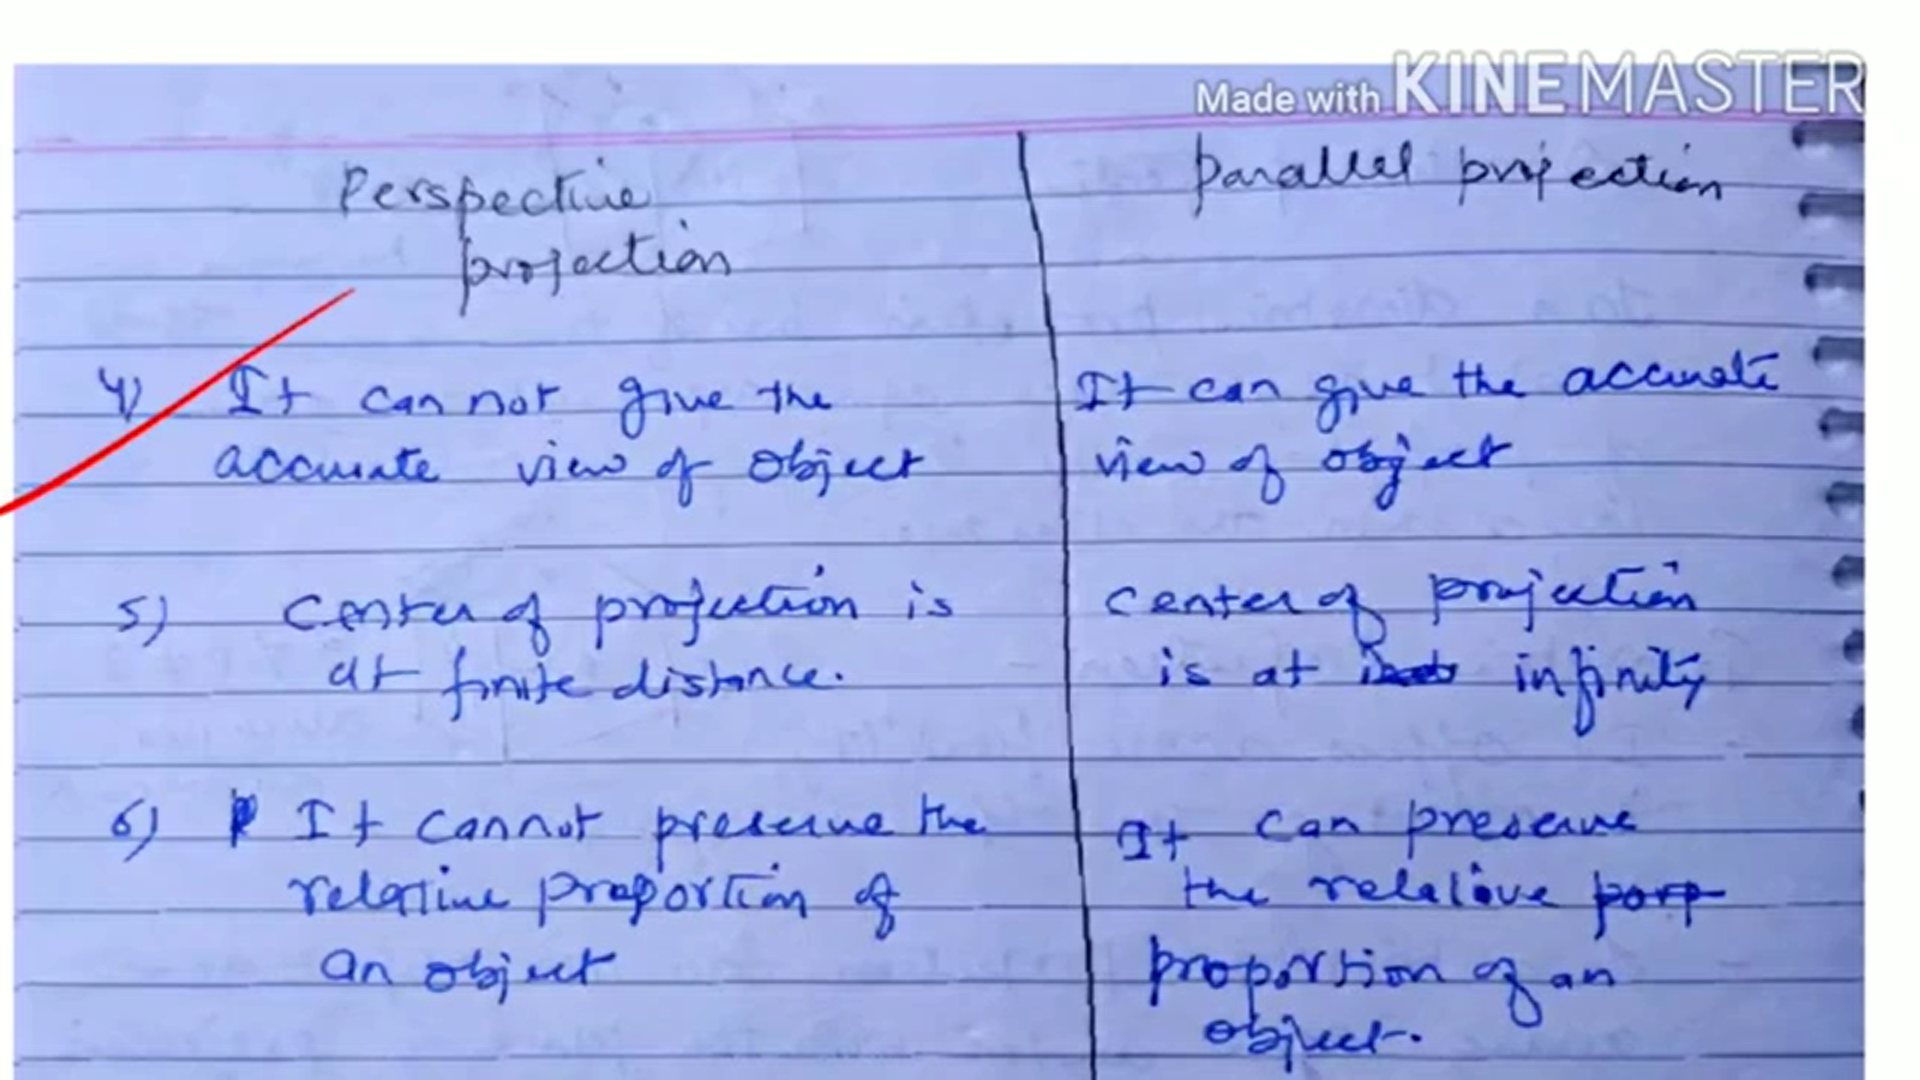 Made with KINEMASTER
Perspective
projection
parallel projection
4) It can not give the
accurate view of object
It can give the accurate
view of object
5) Center of projection is
at finite distance.
center of projection
is at infinity
6) It cannot preserve the
relative proportion of
an object
It can preserve
the relative porp
proportion of an
object.